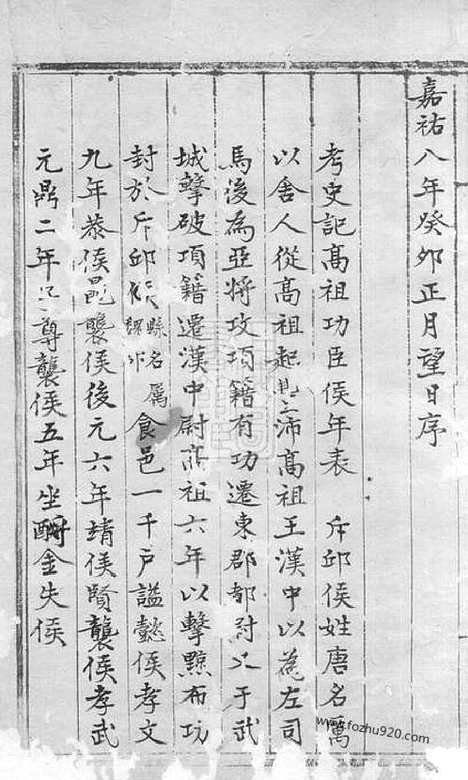 嘉祐八年癸卯正月望日序
考史記高祖功臣侯年表 斥邱侯姓唐名厲
以舍人從高祖起沛高祖王漢中以為左司
馬後為亞將攻項籍有功遷東郡都尉 于武
城擊破項籍遷漢中尉高祖六年以擊黥布功
封於斥邱 縣名屬 食邑一千户謚懿侯孝文
九年恭侯鼂襲侯後元六年靖侯賢襲侯孝武
元鼎二年 尊襲侯五年坐酎金失侯
www.fozhu920.com